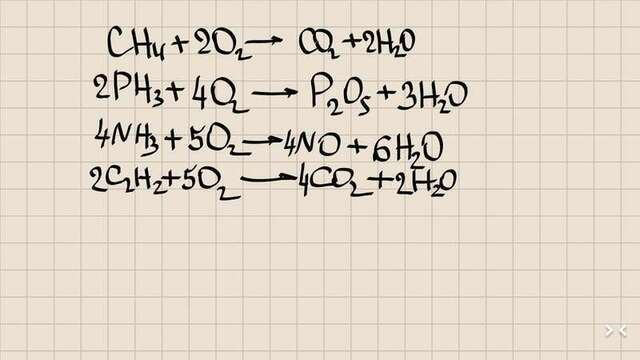 CH₄+2O₂→ CO₂+2H₂O
2PH₃+4O₂ → P₂O₅+3H₂O
4NH₃+5O₂→4NO+6H₂O
2C₂H₂+5O₂→4CO₂+2H₂O